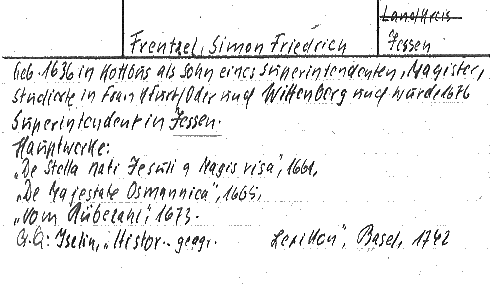 Landkreis
Frentzel, Simon Friedrich Jessen
Geb. 1636 in Kottbus als Sohn eines Superintendenten, Magister,
studierte in Frankfurt/Oder und Wittenberg und wurde 1676
Superintendent in Jessen.
Hauptwerke:
„De Stella nati Jesuli a Magis visa", 1661,
„De Majestate Osmannica", 1665,
„Vom Rübezahl", 1673.
Q.: Iselin, „Histor.- geogr. Lexikon", Basel, 1742